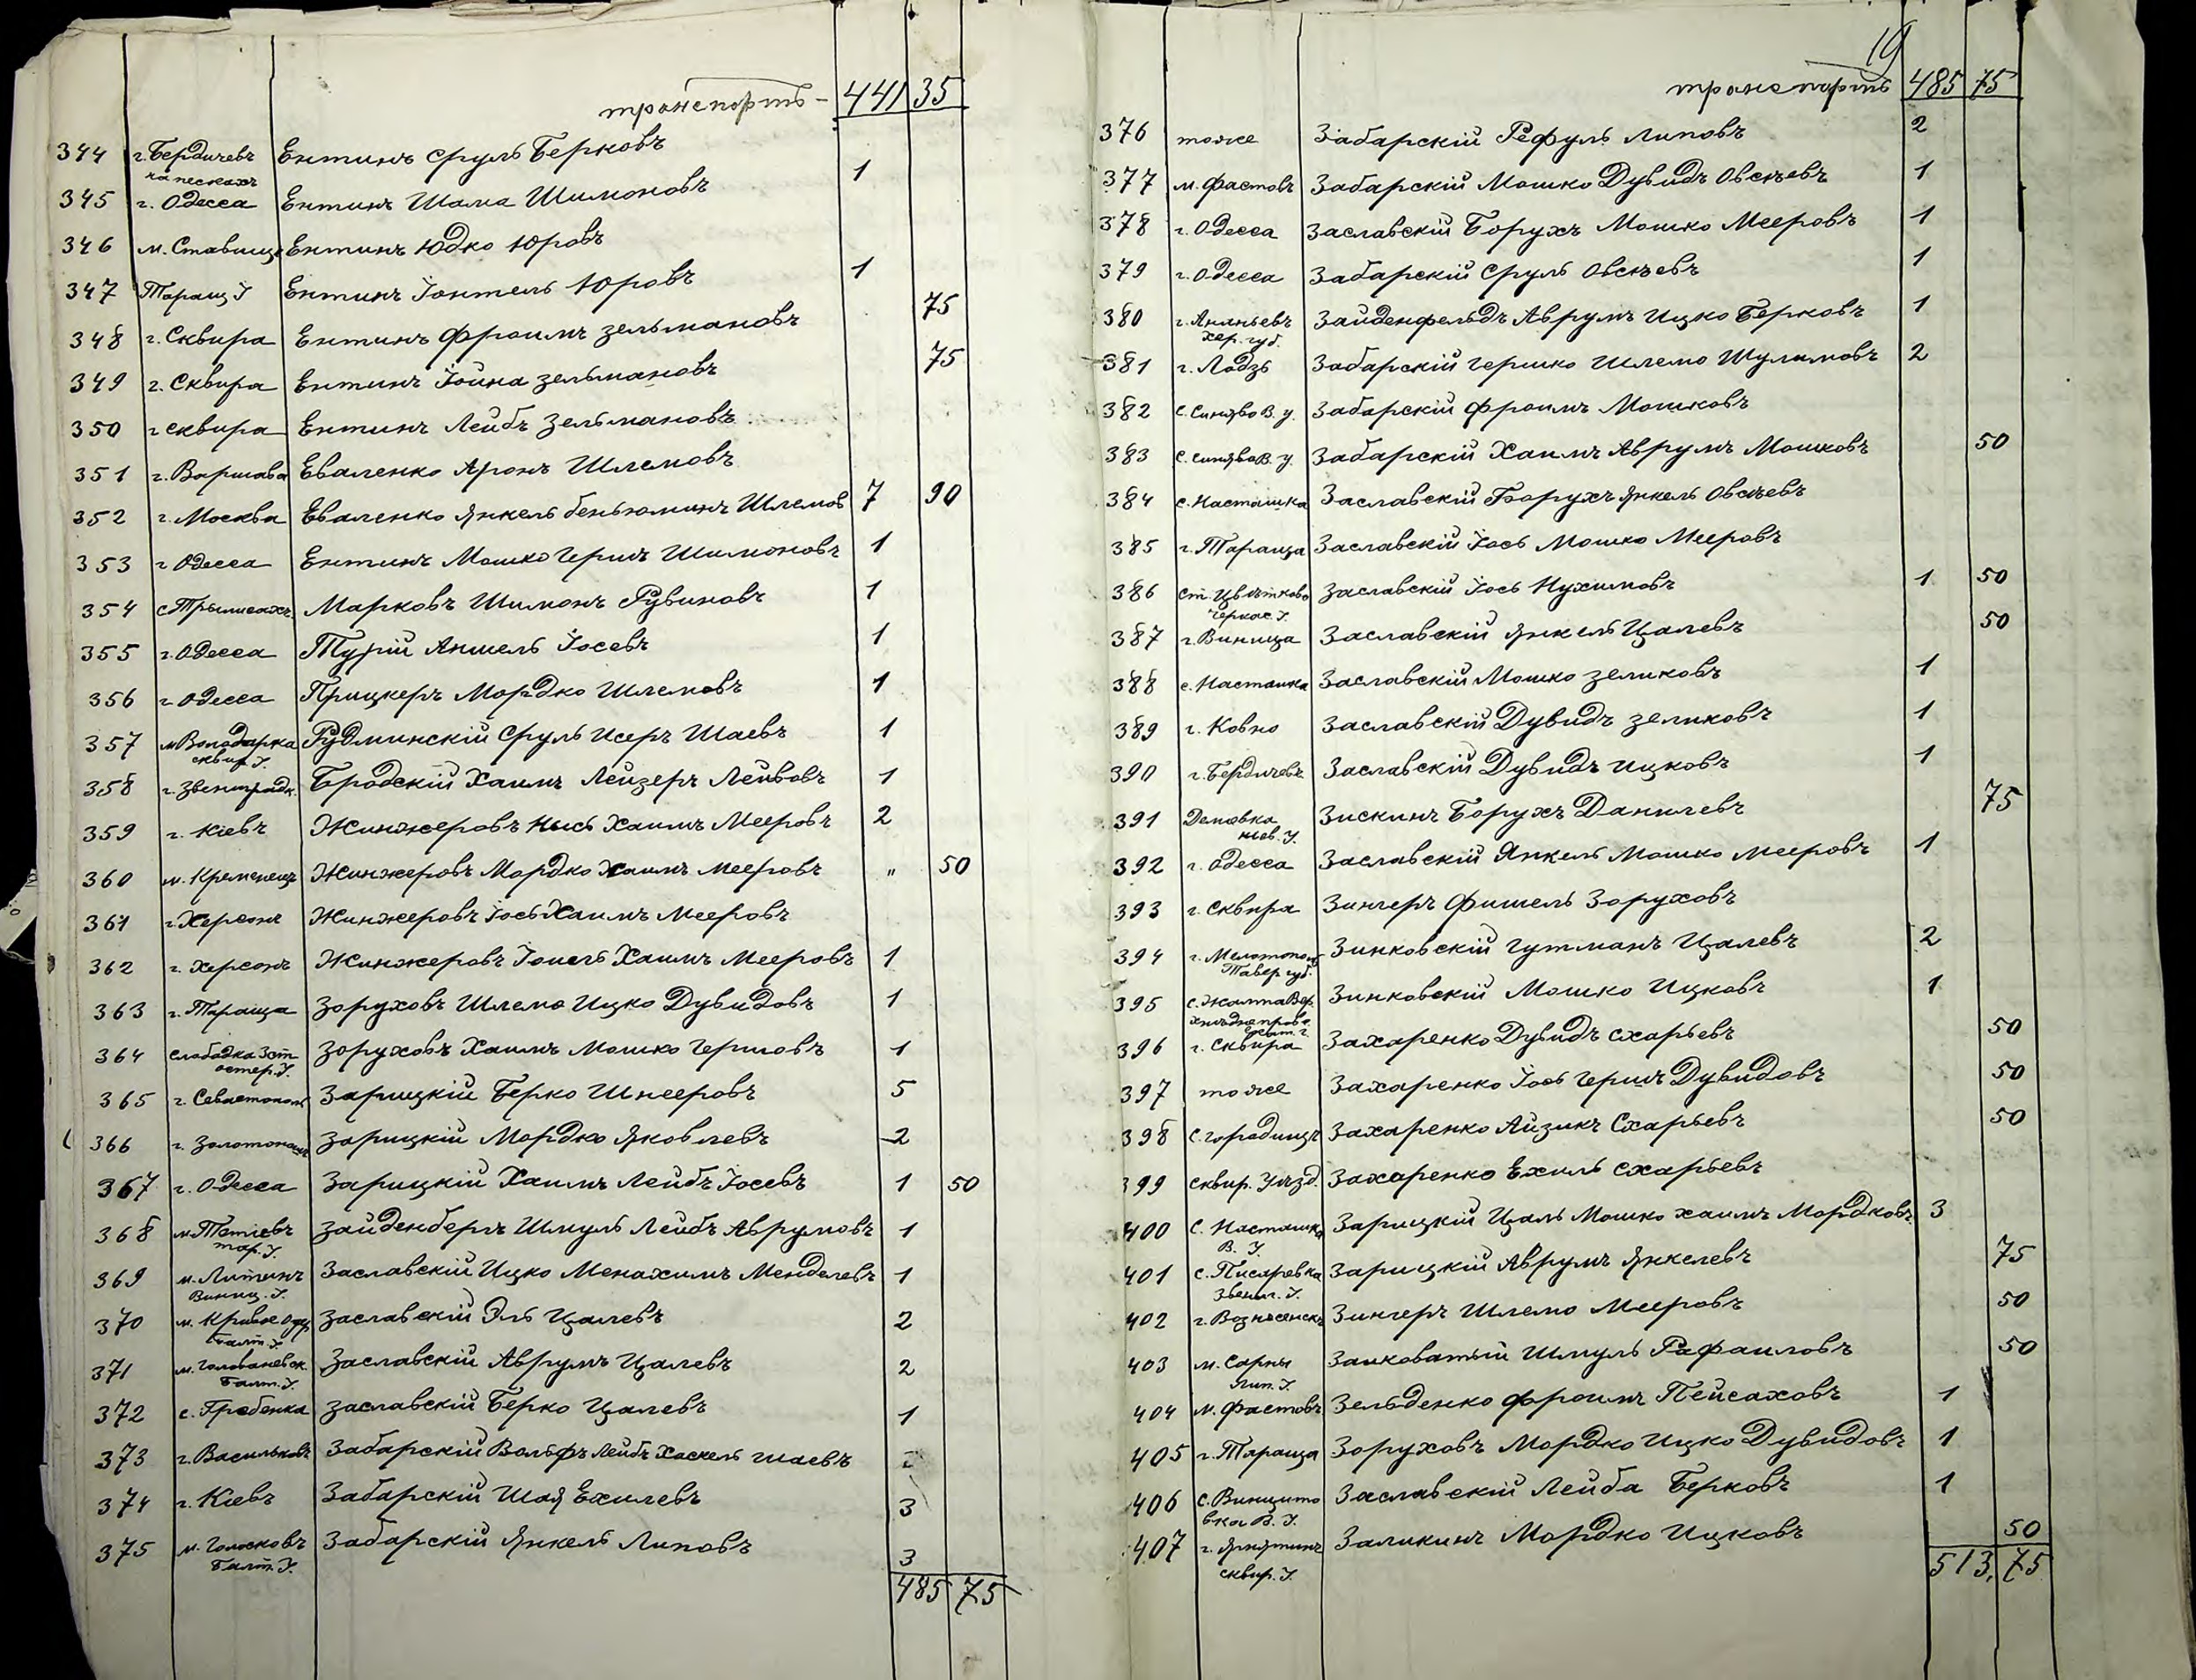 транспортъ - 441 35
344 г. Бердичевъ Ентинъ Сруль Берковъ
на пескахъ
345 г. Одесса Ентинъ Шама Шимоновъ 1
346 м. Ставище Ентинъ Юдко Юровъ
347 Таращ У Ентинъ Іонтель Юровъ 1
348 г. Сквира Ентинъ Фроимъ Зельмановъ 75
349 г. Сквира Ентинъ Іойна Зельмановъ 75
350 г Сквира Ентинъ Лейбъ Зельмановъ
351 г. Варшава Еваленко Аронъ Шлемовъ
352 г. Москва Еваленко Янкель беньюминъ Шлемов 7 90
353 г Одесса Ентинъ Мошко Гершъ Шимоновъ 1
354 Марковъ Шимонъ Рувиновъ 1
355 г. Одесса Турій Аншель Іосевъ 1
356 г. Одесса Прицкеръ Мордко Шлемовъ 1
357 м Володарка Рудминскій Сруль Исеръ Шаевъ 1
сквир. У.
358 г. Звенигродк. Бродскій Хаимъ Лейзеръ Лейбовъ 1
359 г. Кіевъ Жинжеровъ Нысь Хаимъ Мееровъ 2
360 м. Кременецъ Жинжеровъ Мордко Хаимъ Мееровъ " 50
361 г. Херсонъ Жинжеровъ Іось Хаимъ Мееровъ
362 г. Херсонъ Жинжеровъ Хаимъ Мееровъ 1
363 г. Тараща Зоруховъ Шлема Ицко Дувидовъ 1
364 слабадка 3 ст Зоруховъ Хаимъ Мошко Гершовъ 1
остер. У.
365 г. Севастополь Зарицкій Берко Шнееровъ 5
366 г. Золотоноша Зарицкій Мордко Яковлевъ 2
367 г. Одесса Зарицкій Хаимъ Лейбъ Іосевъ 1 50
368 м Тетіевъ Зайденбергъ Шмуль Лейбъ Аврумовъ 1
тар. У.
369 м. Литинъ Заславскій Ицко Менахимъ Менделевъ 1
Винниц. У.
370 м. Кривое Озер Заславскій Эль Цалевъ 2
Балт. У.
371 м. Голованевск. Заславскій Аврумъ Цалевъ 2
Балт. У.
372 с. Гребенка Заславскій Берко Цалевъ 1
373 г. Васильковъ Забарскій Вольфъ Лейбъ Хаскель Шаевъ
374 г. Кіевъ Забарскій Шая Ехилевъ 3
375 м. Голосковъ Забарскій Янкель Липовъ 3
Балт. У.
485 75
19
транспортъ 485 75
376 тоже Забарскій Рефуль Липовъ 2
377 м. Фастовъ Забарскій Мошко Дувидъ Овсѣевъ 1
378 г. Одесса Заславскій Борухъ Мошко Мееровъ 1
379 г. Одесса Забарскій Сруль Овсѣевъ 1
380 г. Ананьевъ Зайденфельдъ Аврумъ Ицко Берковъ 1
хер. губ.
381 г. Лодзь Забарскій Гершко Шлемо Шулимовъ 2
382 с. Синява В. у. Забарскій Фроимъ Мошковъ
383 с. Синява В. у. Забарскій Хаимъ Аврумъ Мошковъ 50
384 с. Насташка Заславскій Борухъ Янкель Овсѣевъ
385 г. Тараща Заславскій Іось Мошко Мееровъ
386 ст. Цвѣтково Заславскій Іось Нухимовъ 1 50
черкас. У.
387 г. Винница Заславскій Янкель Цалевъ 50
388 с. Насташка Заславскій Мошко Зеликовъ 1
389 г. Ковно Заславскій Дувидъ Зеликовъ 1
390 г. Бердичевъ Заславскій Дувидъ Ицковъ 1
391 Демовка Зискинъ Борухъ Данилевъ 75
кіев. У.
392 г. Одесса Заславскій Янкель Мошко Мееровъ 1
393 г. Сквира Зингеръ Фишель Зоруховъ
394 г. Мелотополь Зинковскій Гутманъ Цалевъ 2
Тавер. губ.
395 с. Жолта Вер. Зинковскій Мошко Ицковъ 1
396 г. Сквира Захаренко Дувидъ Схарьевъ 50
397 тоже Захаренко Іось Гершъ Дувидовъ 50
398 с. Городище Захаренко Айзикъ Схарьевъ 50
399 сквир. Уѣзд. Захаренко Ехиль Схарьевъ
400 с. Насташка Зарицкій Цаль Мошко Хаимъ Мордковъ 3
В. У.
401 с. Писаревка Зарицкій Аврумъ Янкелевъ 75
Звениг. У.
402 г. Вознесенскъ Зингеръ Шлемо Мееровъ 50
403 м. Сарны Заиковатый Шмуль Рафаиловъ 50
Лип. У.
404 м. Фастовъ Зельденко Фроимъ Пейсаховъ 1
405 г. Тараща Зоруховъ Мордко Ицко Дувидовъ 1
406 с. Винцито Заславскій Лейба Берковъ 1
вка В. У.
407 Заликинъ Мордко Ицковъ 50
сквир. У.
513, 75